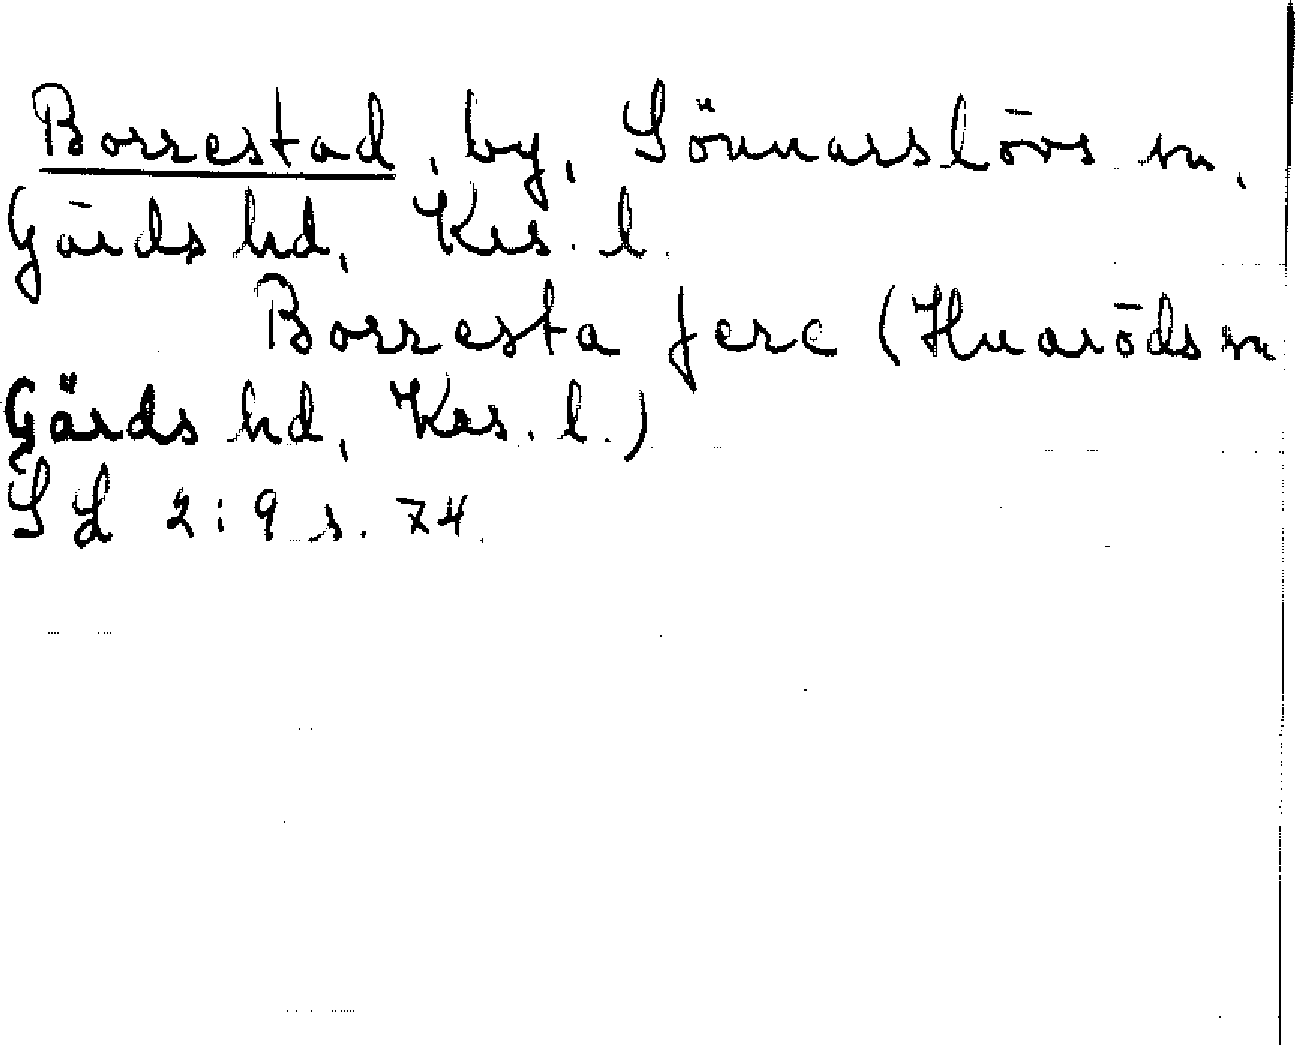 Borrestad, by, Sönnarslövs sn,
Gärds hd, Krs. l.
Borresta jere (Huaröds sn
Gärds hd, Krs. l.)
SL 2:9 s. 74.